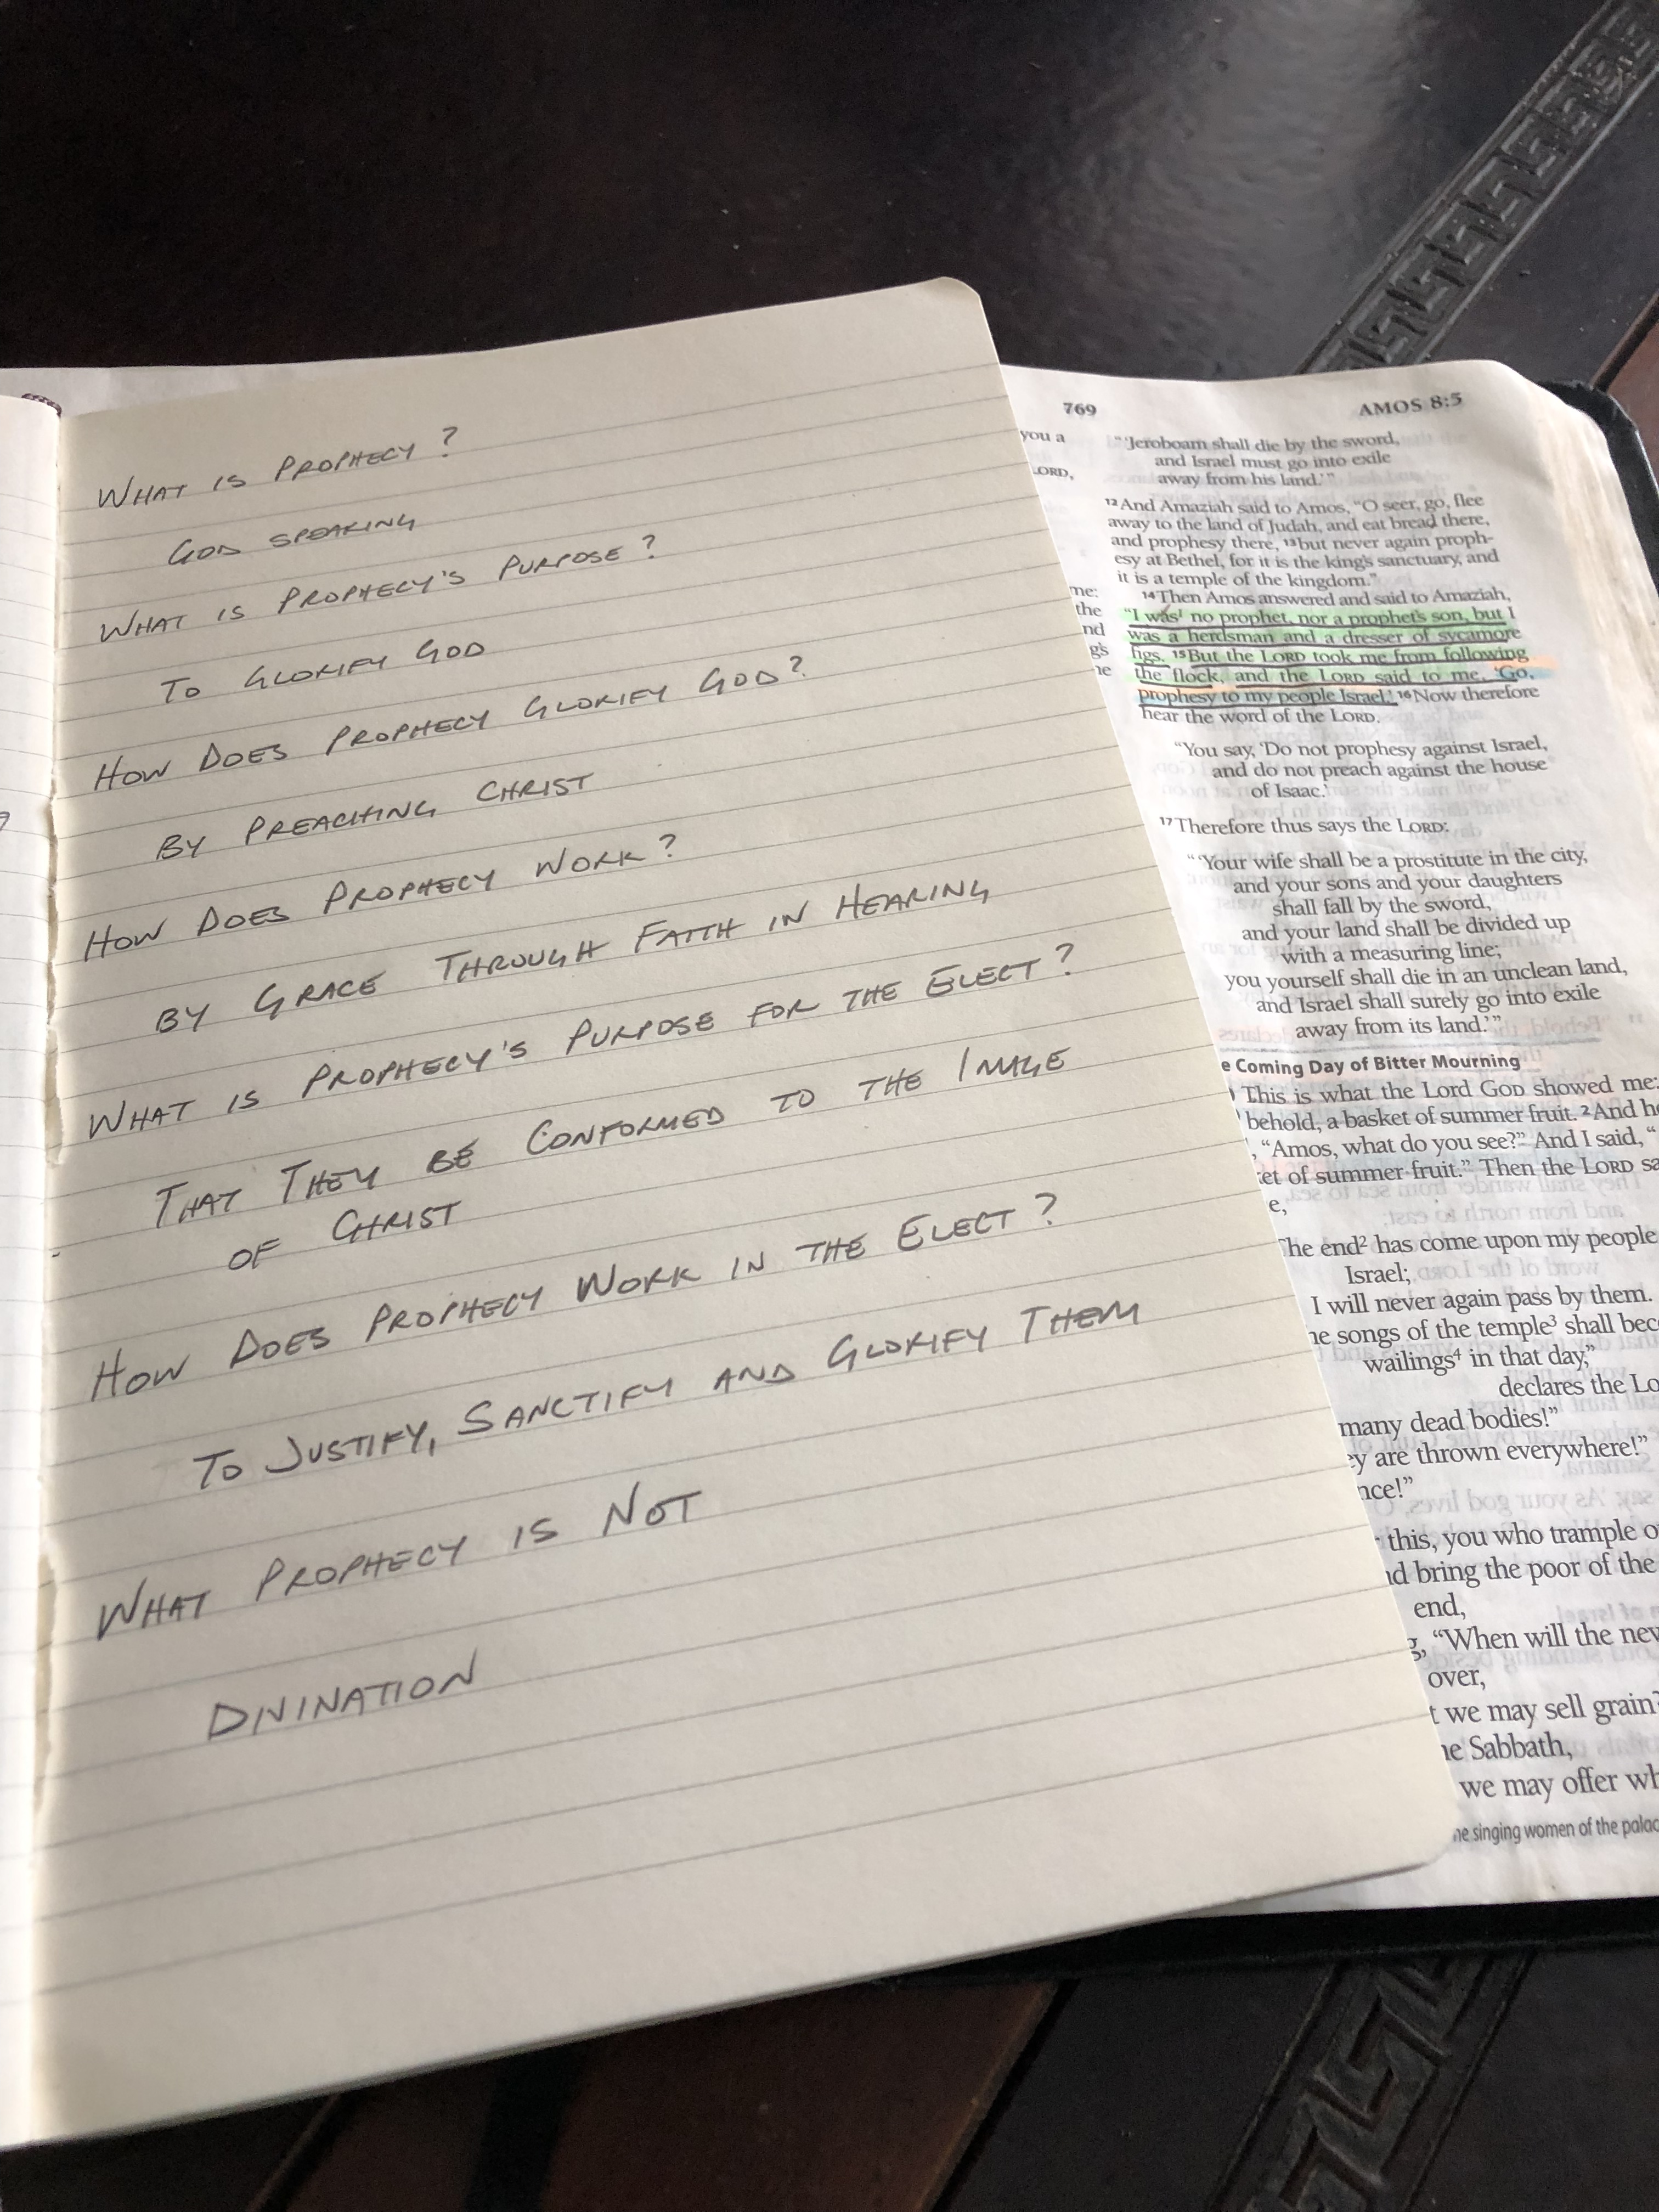 WHAT IS PROPHECY?
GOD SPEAKING
WHAT IS PROPHECY'S PURPOSE?
TO GLORIFY GOD
HOW DOES PROPHECY GLORIFY GOD?
BY PREACHING CHRIST
HOW DOES PROPHECY WORK?
BY GRACE THROUGH FAITH IN HEARING
WHAT IS PROPHECY'S PURPOSE FOR THE ELECT?
THAT THEY BE CONFORMED TO THE IMAGE
OF CHRIST
HOW DOES PROPHECY WORK IN THE ELECT?
TO JUSTIFY, SANCTIFY AND GLORIFY THEM
WHAT PROPHECY IS NOT
DIVINATION
769 AMOS 8:5
you a
LORD,
me:
the
nd
gs
ne
"'Jeroboam shall die by the sword,
and Israel must go into exile
away from his land.'"
12 And Amaziah said to Amos, "O seer, go, flee
away to the land of Judah, and eat bread there,
and prophesy there, 13 but never again proph-
esy at Bethel, for it is the king's sanctuary, and
it is a temple of the kingdom."
14 Then Amos answered and said to Amaziah,
"I was1 no prophet, nor a prophet's son, but I
was a herdsman and a dresser of sycamore
figs. 15 But the LORD took me from following
the flock, and the LORD said to me, 'Go,
prophesy to my people Israel.' 16 Now therefore
hear the word of the LORD.
"You say, 'Do not prophesy against Israel,
and do not preach against the house
of Isaac.'
17 Therefore thus says the LORD:
"'Your wife shall be a prostitute in the city,
and your sons and your daughters
shall fall by the sword,
and your land shall be divided up
with a measuring line;
you yourself shall die in an unclean land,
and Israel shall surely go into exile
away from its land.'"
e Coming Day of Bitter Mourning
This is what the Lord GOD showed me:
behold, a basket of summer fruit. 2 And he
, "Amos, what do you see?" And I said, "
ket of summer fruit." Then the LORD sa
e,
The end2 has come upon my people
Israel;
I will never again pass by them.
he songs of the temple3 shall bec
wailings4 in that day,"
declares the Lo
many dead bodies!"
ey are thrown everywhere!"
nce!"
this, you who trample o
nd bring the poor of the
end,
g, "When will the new
over,
t we may sell grain?
he Sabbath,
we may offer wh
he singing women of the palac